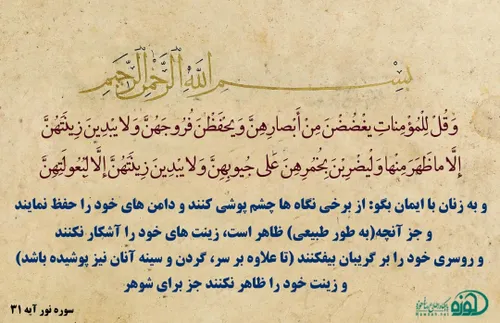 بِسْمِ اللهِ الرَّحْمنِ الرَّحِيمِ
وَقُلْ لِلْمُؤْمِناتِ يَغْضُضْنَ مِنْ أَبْصارِهِنَّ وَيَحْفَظْنَ فُرُوجَهُنَّ وَلا يُبْدِينَ زِينَتَهُنَّ
إِلَّا ما ظَهَرَ مِنْها وَلْيَضْرِبْنَ بِخُمُرِهِنَّ عَلى جُيُوبِهِنَّ وَلا يُبْدِينَ زِينَتَهُنَّ إِلَّا لِبُعُولَتِهِنَّ
و به زنان با ایمان بگو: از برخی نگاه ها چشم پوشی کنند و دامن های خود را حفظ نمایند
و جز آنچه(به طور طبیعی) ظاهر است، زینت های خود را آشکار نکنند
و روسری خود را بر گریبان بیفکنند (تا علاوه بر سر، گردن و سینه آنان نیز پوشیده باشد)
و زینت خود را ظاهر نکنند جز برای شوهر
سوره نور آیه ۳۱
حوزه